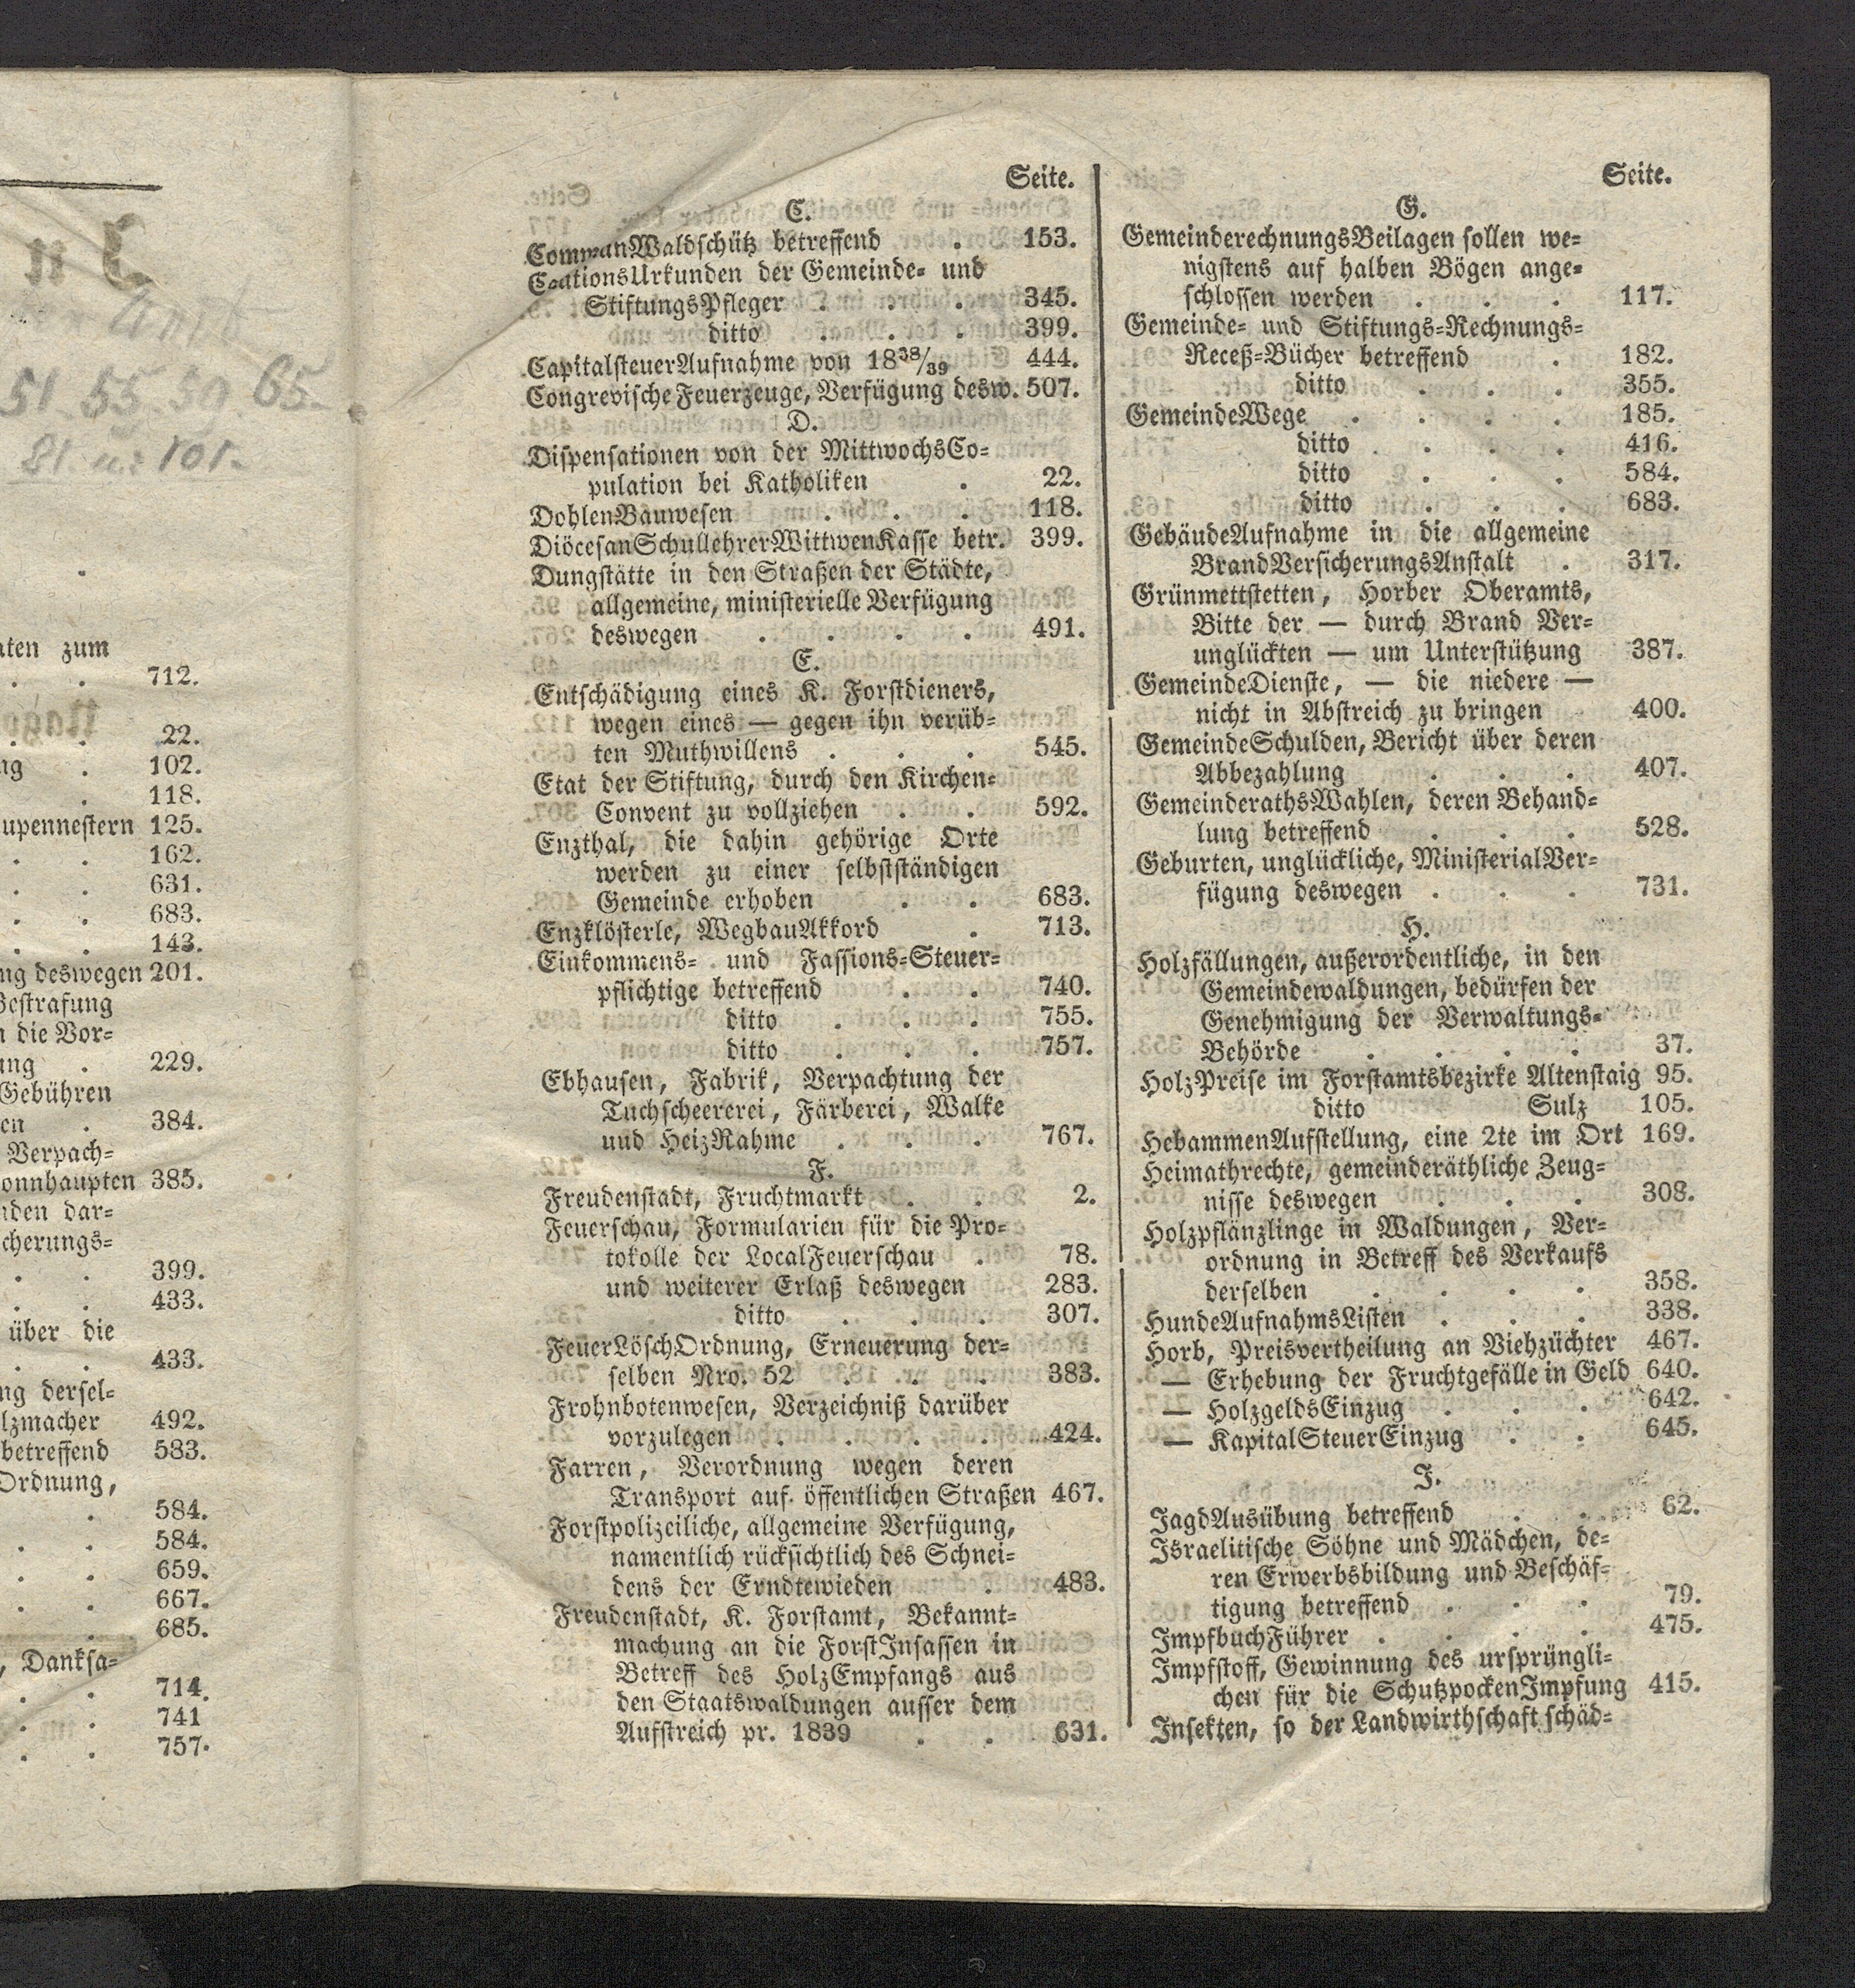 51 55 59 65
81 u. 101.
aten zum
712.
22.
ng . 102.
118.
upennestern 125.
162.
631.
683.
143.
ng deswegen 201.
Bestrafung
n die Vor=
ung . 229.
Gebühren
en . 384.
Verpach=
onnhaupten 385.
nden dar=
cherungs=
399.
433.
über die
433.
ng dersel=
lzmacher 492.
betreffend 583.
Ordnung,
584.
584.
659.
667.
685.
, Danksa=
714.
741
757.
Seite.
C.
CommunWaldschütz betreffend . 153.
CautionsUrkunden der Gemeinde= und
StiftungsPfleger . . . 345.
ditto . . . 399.
CapitalsteuerAufnahme von 18³⁸/₃₉ 444.
Congrevische Feuerzeuge, Verfügung desw. 507.
D.
Dispensationen von der MittwochsCo=
pulation bei Katholiken . 22.
DohlenBauwesen . . . 118.
DiöcesanSchullehrerWittwenKasse betr. 399.
Dungstätte in den Straßen der Städte,
allgemeine, ministerielle Verfügung
deswegen . . . . 491.
E.
Entschädigung eines K. Forstdieners,
wegen eines — gegen ihn verüb=
ten Muthwillens . . . 545.
Etat der Stiftung, durch den Kirchen=
Convent zu vollziehen . . 592.
Enzthal, die dahin gehörige Orte
werden zu einer selbstständigen
Gemeinde erhoben . . 683.
Enzklösterle, WegbauAkkord . 713.
Einkommens= und Fassions=Steuer=
pflichtige betreffend . . 740.
ditto . . . 755.
ditto . . . 757.
Ebhausen, Fabrik, Verpachtung der
Tuchscheererei, Färberei, Walke
und HeizRahme . . . 767.
F.
Freudenstadt, Fruchtmarkt . . 2.
Feuerschau, Formularien für die Pro=
tokolle der LocalFeuerschau . 78.
und weiterer Erlaß deswegen 283.
ditto . . . 307.
FeuerLöschOrdnung, Erneuerung der=
selben Nro. 52 . . . 383.
Frohnbotenwesen, Verzeichniß darüber
vorzulegen . . . . 424.
Farren, Verordnung wegen deren
Transport auf öffentlichen Straßen 467.
Forstpolizeiliche, allgemeine Verfügung,
namentlich rücksichtlich des Schnei=
dens der Erndtewieden . 483.
Freudenstadt, K. Forstamt, Bekannt=
machung an die ForstInsassen in
Betreff des HolzEmpfangs aus
den Staatswaldungen ausser dem
Aufstreich pr. 1839 . . 631.
Seite.
G.
GemeinderechnungsBeilagen sollen we=
nigstens auf halben Bögen ange=
schlossen werden . . . 117.
Gemeinde= und Stiftungs=Rechnungs=
Receß=Bücher betreffend . 182.
ditto . . . 355.
GemeindeWege . . . . 185.
ditto . . . . 416.
ditto . . . 584.
ditto . . . 683.
GebäudeAufnahme in die allgemeine
BrandVersicherungsAnstalt . 317.
Grünmettstetten, Horber Oberamts,
Bitte der — durch Brand Ver=
unglückten — um Unterstützung 387.
GemeindeDienste, — die niedere —
nicht in Abstreich zu bringen 400.
GemeindeSchulden, Bericht über deren
Abbezahlung . . . 407.
GemeinderathsWahlen, deren Behand=
lung betreffend . . . 528.
Geburten, unglückliche, MinisterialVer=
fügung deswegen . . . 731.
H.
Holzfällungen, außerordentliche, in den
Gemeindewaldungen, bedürfen der
Genehmigung der Verwaltungs=
Behörde . . . . 37.
HolzPreise im Forstamtsbezirke Altenstaig 95.
ditto Sulz 105.
HebammenAufstellung, eine 2te im Ort 169.
Heimathrechte, gemeinderäthliche Zeug=
nisse deswegen . . . 308.
Holzpflänzlinge in Waldungen, Ver=
ordnung in Betreff des Verkaufs
derselben . . . . 358.
HundeAufnahmsListen . . . 338.
Horb, Preisvertheilung an Viehzüchter 467.
— Erhebung der Fruchtgefälle in Geld 640.
— HolzgeldsEinzug . . . 642.
— KapitalSteuerEinzug . . 645.
J.
JagdAusübung betreffend . . 62.
Israelitische Söhne und Mädchen, de=
ren Erwerbsbildung und Beschäf=
tigung betreffend . . . 79.
ImpfbuchFührer . . . . 475.
Impfstoff, Gewinnung des ursprüngli=
chen für die SchutzpockenImpfung 415.
Insekten, so der Landwirthschaft schäd=